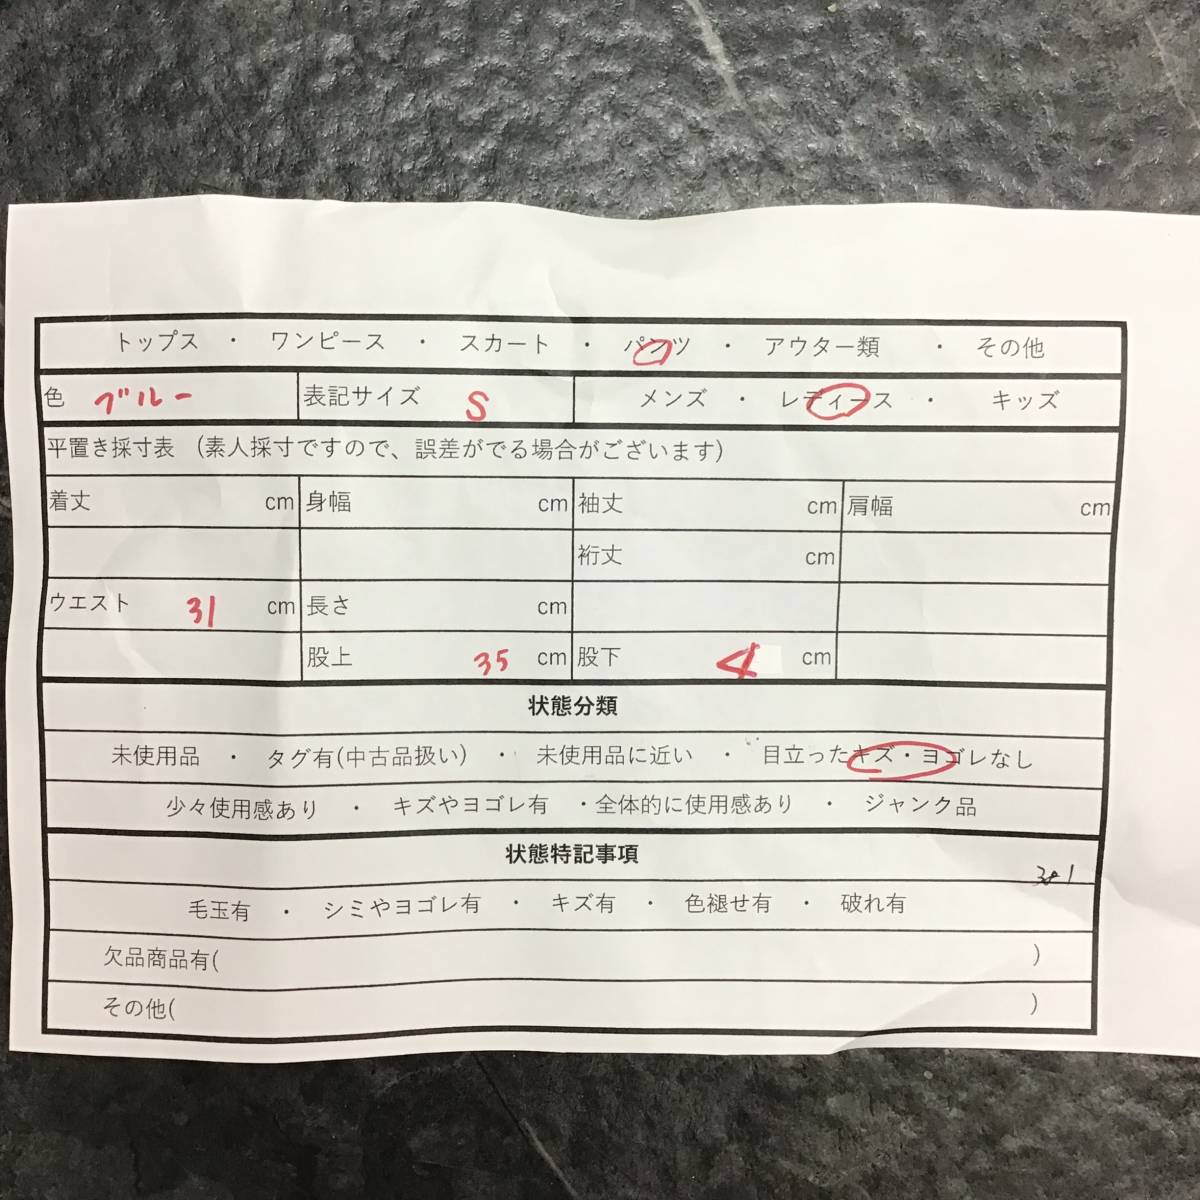 トップス ・ ワンピース ・ スカート ・ パンツ ・ アウター類 ・ その他
色 ブルー 表記サイズ S メンズ ・ レディース ・ キッズ
平置き採寸表 (素人採寸ですので、誤差がでる場合がございます)
着丈 cm 身幅 cm 袖丈 cm 肩幅 cm
裄丈 cm
ウエスト 31 cm 長さ cm
股上 35 cm 股下 cm
状態分類
未使用品 ・ タグ有(中古品扱い) ・ 未使用品に近い ・ 目立ったキズ・ヨゴレなし
少々使用感あり ・ キズやヨゴレ有 ・全体的に使用感あり ・ ジャンク品
状態特記事項
毛玉有 ・ シミやヨゴレ有 ・ キズ有 ・ 色褪せ有 ・ 破れ有
欠品商品有( )
その他( )